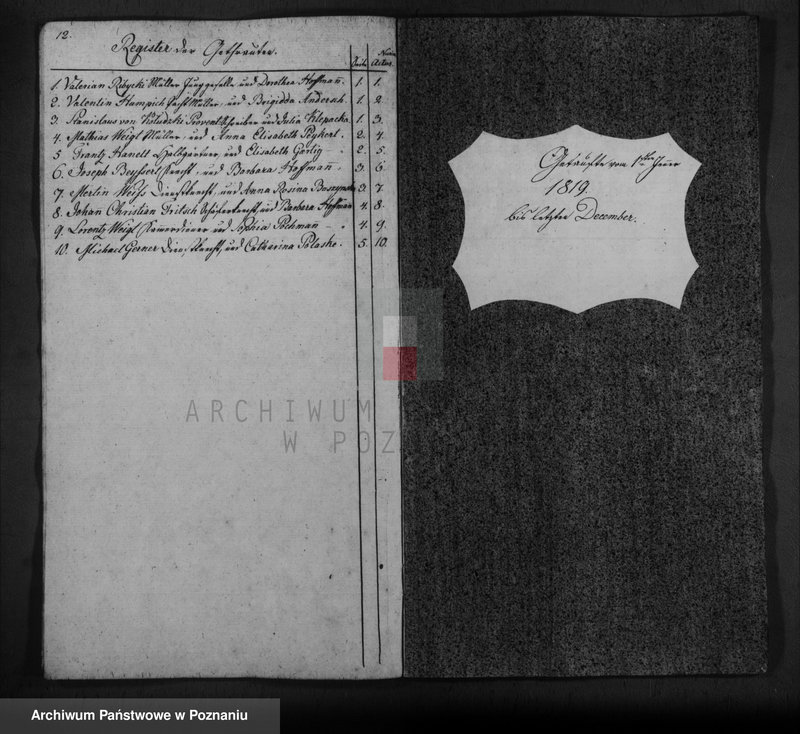 12.
Register der Gethrauten.
Seite
Num
Actus
1. Valerian Ribycki Müller Junggeselle und Dorothea Hoffmañ. 1. 1.
2. Valentin Hampich Müller, und Brigidda Anderssh. 1. 2
3. Stanislaus von Koludzki Provent Schreiber und Julia Klepacka 1. 3.
4. Mathias Weigl Müller, und Anna Elisabeth Peykert. 2. 4.
5 Frantz Hanelt Halbgärtner, und Elisabeth Gärtig 2. 5.
6. Joseph Beyssert Knecht, und Barbara Hoffmañ. 3. 6
7. Mertin Weigl Dinstknecht, und Anna Rosina 3. 7
8. Johan Christian Fritsch Schäferknecht, und Barbara Hoffman 4. 8.
9. Lorentz Weigl und Sophia Pöchman 4. 9.
10. Michael Gerner Dienstknecht, und Catharina Polaske. 5. 10.
Getaufte vom 1ten Jener
1819
bis letzten December.
ARCHIWUM
W POZ
Archiwum Państwowe w Poznaniu